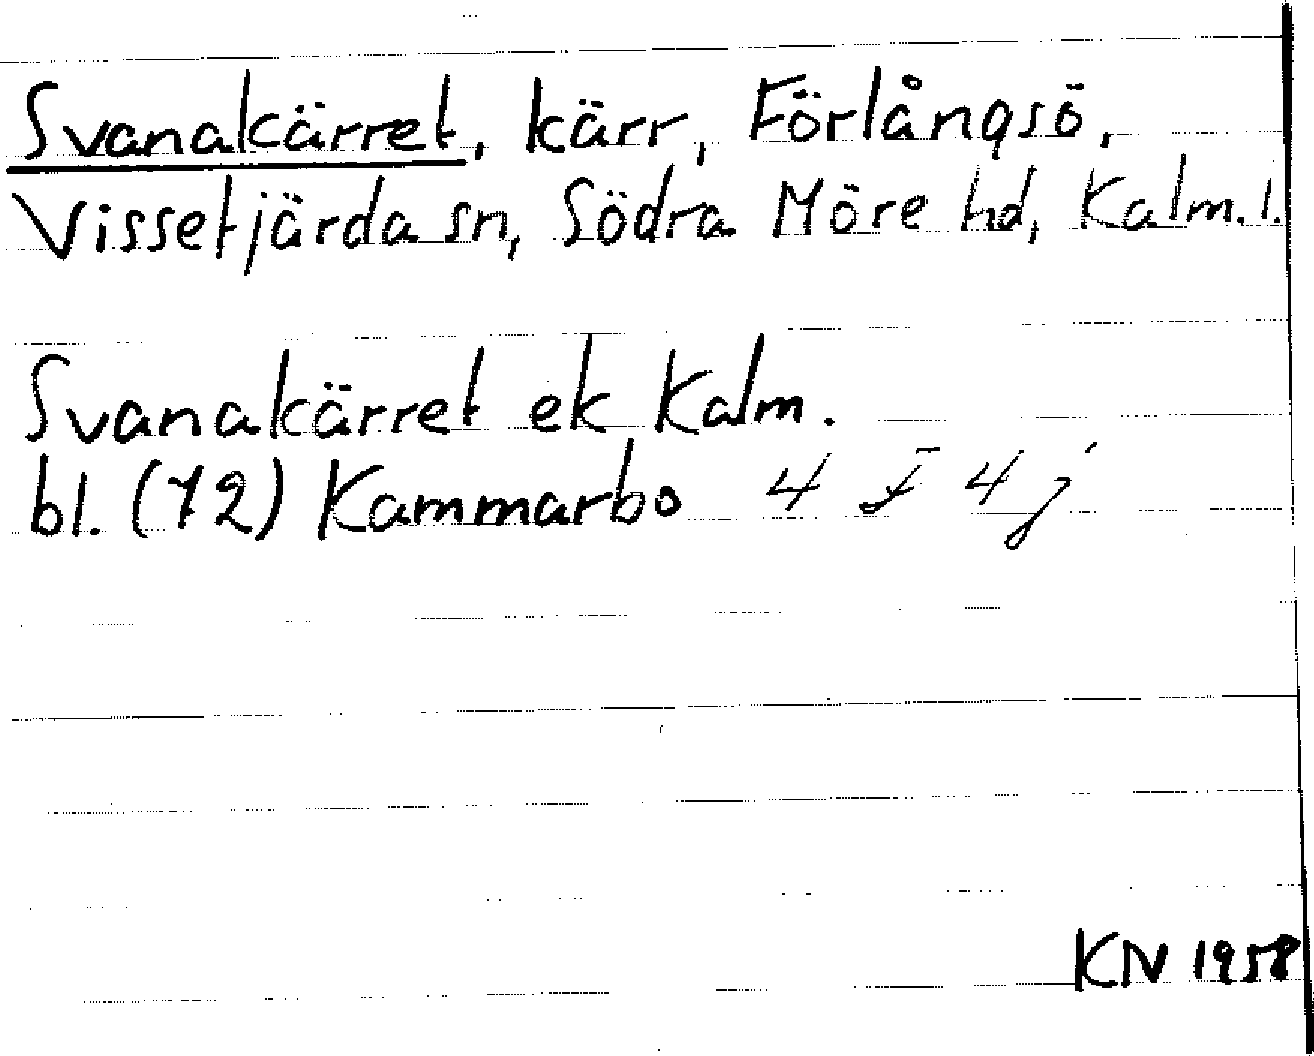 Svanakärret, kärr, Förlångsö,
Vissefjärda sn, Södra Möre hd, Kalm. l.
Svanakärret ek Kalm.
bl. (12) Kammarbo 4 F 4 j
KN 1958